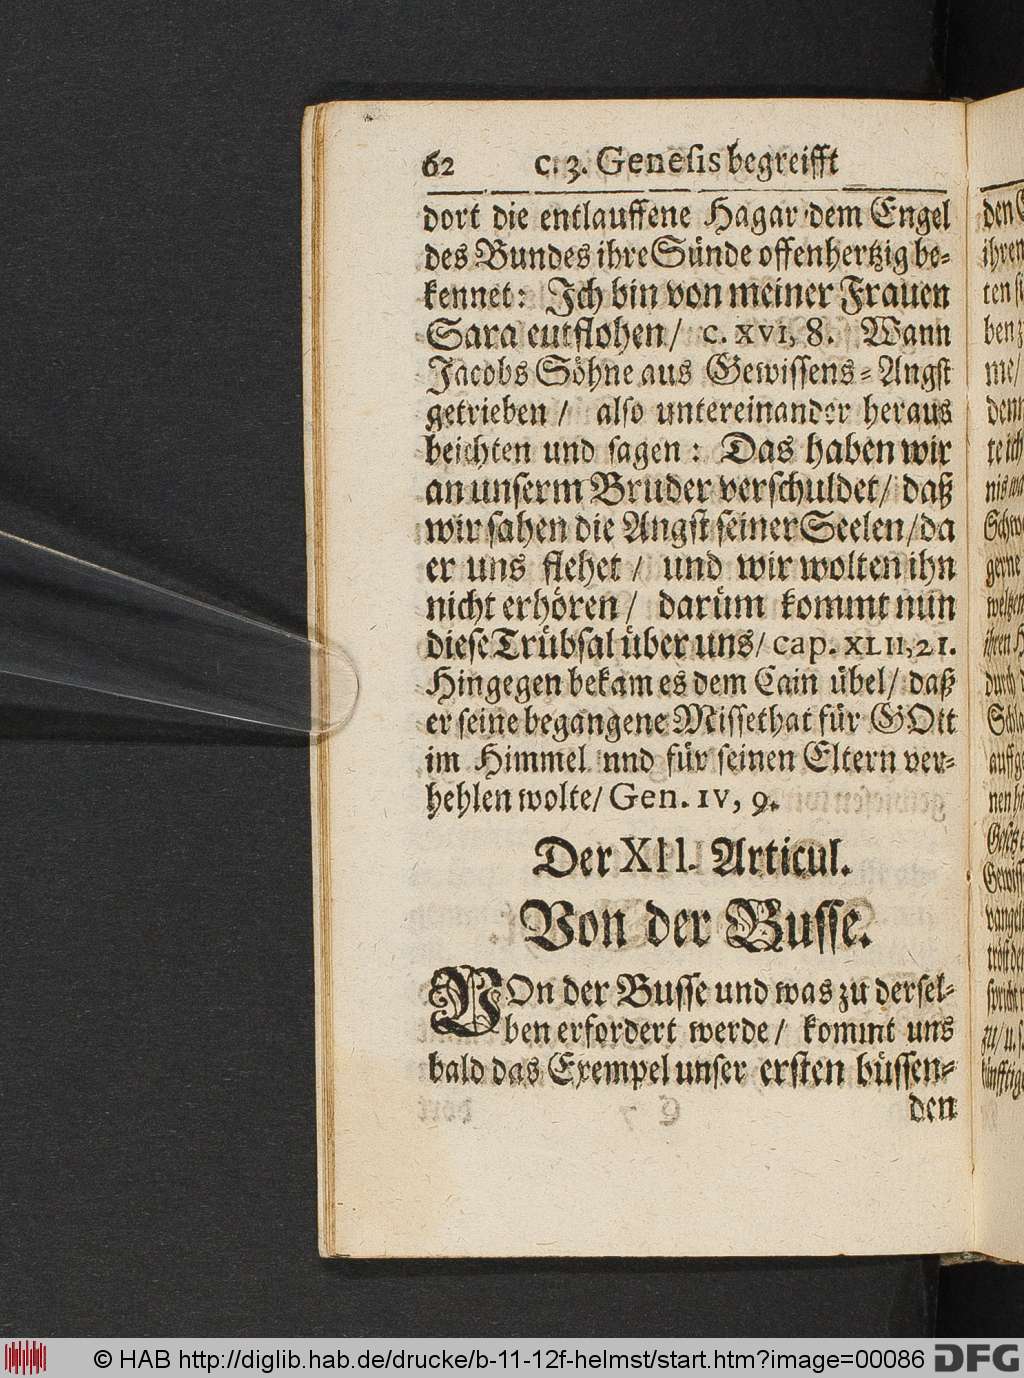 62 c. 3. Genesis begreifft
dort die entlauffene Hagar dem Engel
des Bundes ihre Sünde offenhertzig be-
kennet: Ich bin von meiner Frauen
Sara eutflohen/ c. XVI, 8. Wann
Jacobs Söhne aus Gewissens-Angst
getrieben/ also untereinander heraus
beichten und sagen: Das haben wir
an unserm Bruder verschuldet/ daß
wir sahen die Angst seiner Seelen/ da
er uns flehet/ und wir wolten ihn
nicht erhören/ darüm kommt nun
diese Trübsal über uns/ cap. XLII, 21.
Hingegen bekam es dem Cain übel/ daß
er seine begangene Missethat für GOtt
im Himmel nnd für seinen Eltern ver-
hehlen wolte/ Gen. IV, 9.
Der XII. Articul.
Von der Busse.
VOn der Busse und was zu dersel-
ben erfordert werde/ kommt uns
bald das Exempel unser ersten büssen-
den
© HAB http://diglib.hab.de/drucke/b-11-12f-helmst/start.htm?image=00086 DFG